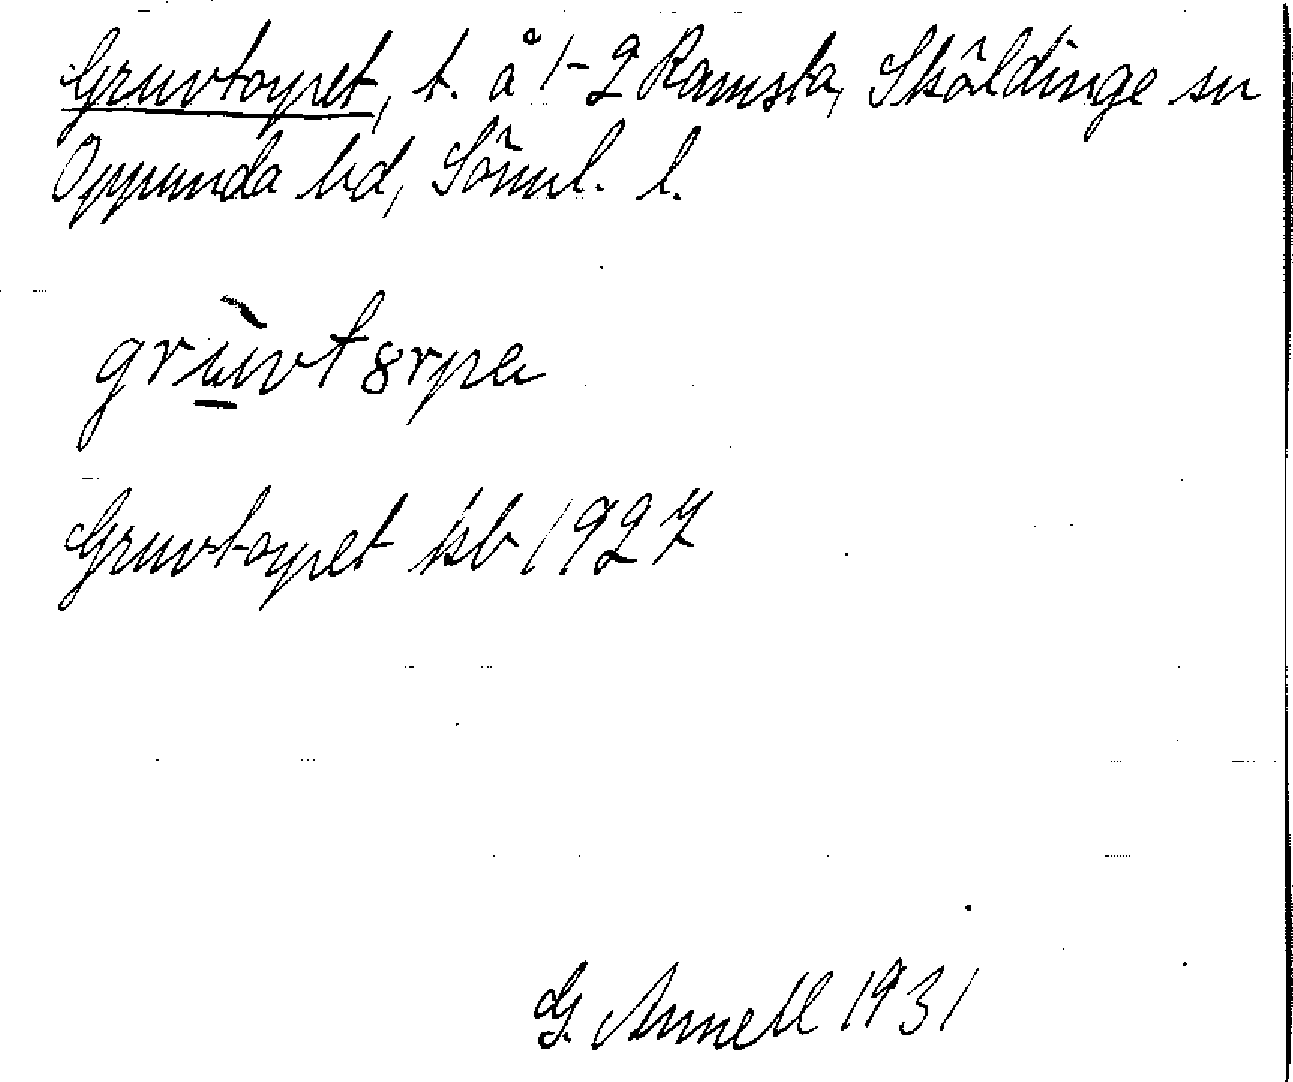 Gruvtorpet, t. å 1-2 Ramsta, Sköldinge sn
Oppunda hd, Söml. l.
grùvt8rpa
Gruvtorpet kb 1927
G. Annell 1931